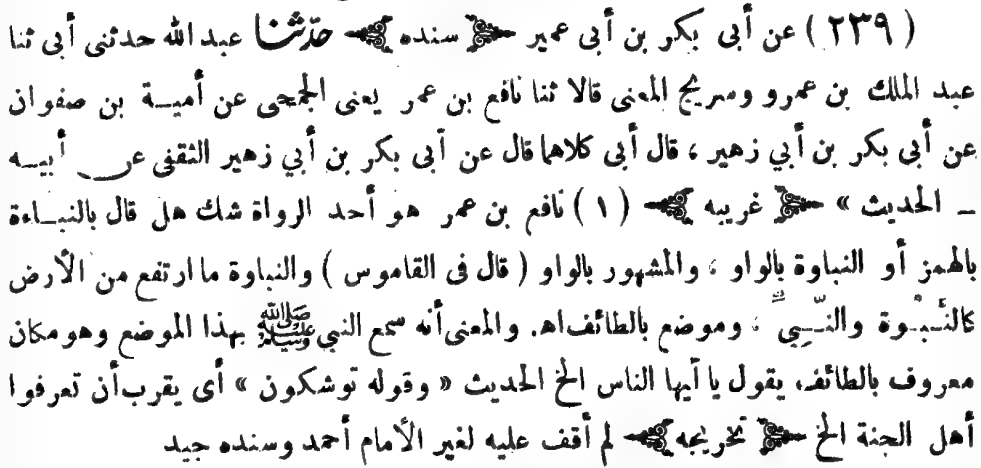 (٢٣٩) عن أبى بكر بن أبى عمير ﴿ سنده ﴾ حدّثنا عبد الله حدثنى أبى ثنا
عبد الملك بن عمرو وسريج المعنى قالا ثنا نافع بن عمر يعنى الجمحى عن أميــة بن صفوان
عن أبى بكر بن أبي زهير ، قال أبى كلاهما قال عن أبى بكر بن أبي زهير الثقفى عن أبيــه
ــ الحديث » ﴿ غريبه ﴾ (١) نافع بن عمر هو أحد الرواة شك هل قال بالنبــاءة
بالهمز أو النباوة بالواو ، والمشهور بالواو ( قال فى القاموس ) والنباوة ما ارتفع من الأرض
كالنَّبْوة والنَّبِي ، وموضع بالطائف اهـ. والمعنى أنه سمع النبي ﷺ بهذا الموضع وهو مكان
معروف بالطائف، يقول يا أيها الناس الخ الحديث « وقوله توشكون » أى يقرب أن تعرفوا
أهل الجنة الخ ﴿ تخريجه ﴾ لم أقف عليه لغير الأمام أحمد وسنده جيد